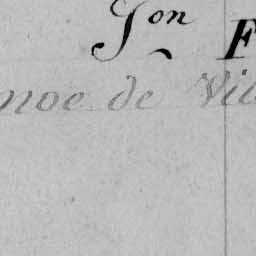 Jon F
noe de Vil